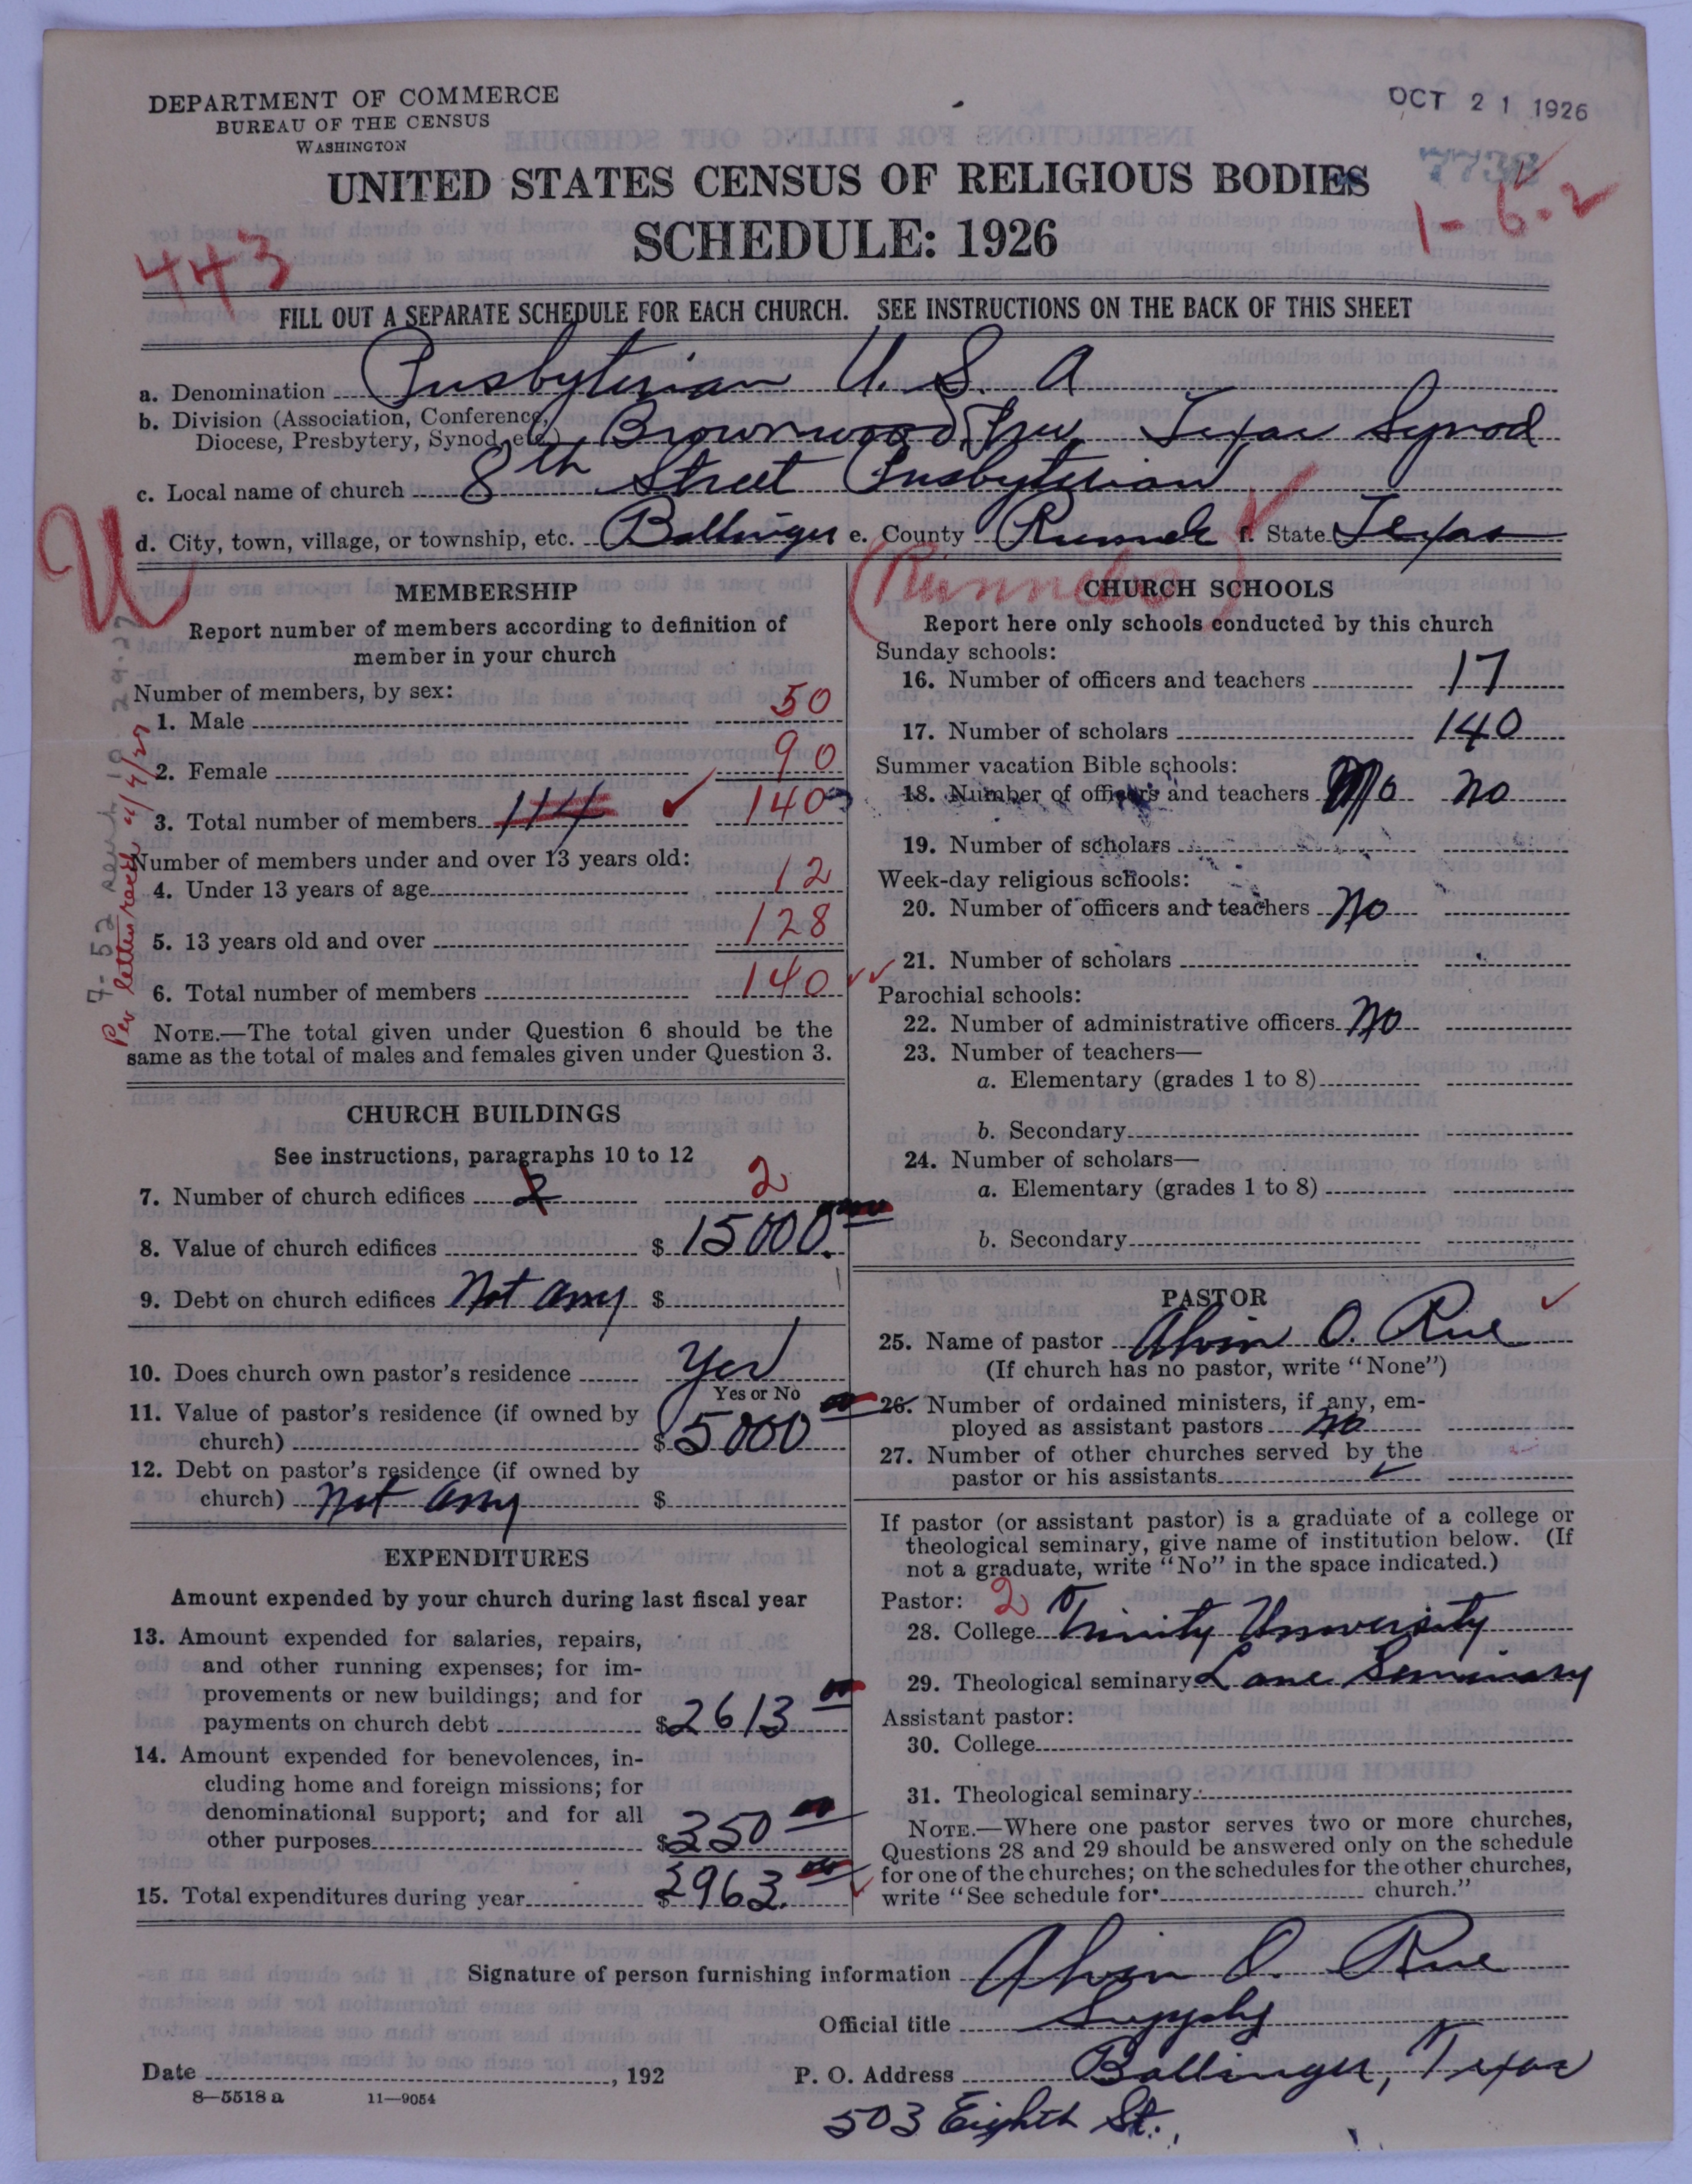 DEPARTMENT OF COMMERCE
BUREAU OF THE CENSUS
WASHINGTON
OCT 21 1926
7738
UNITED STATES CENSUS OF RELIGIOUS BODIES
1-6-2
SCHEDULE: 1926
443
FILL OUT A SEPARATE SCHEDULE FOR EACH CHURCH. SEE INSTRUCTIONS ON THE BACK OF THIS SHEET
a. Denomination Presbyterian U. S. A
b. Division (Association, Conference, Diocese, Presbytery, Synod, etc.) Brownwood Texas Synod
c. Local name of church 8th Street Presbyterian
d. City, town, village, or township, etc. Ballinger e. County Runnels f. State Texas
(Runnels)
U
Per letter rec'd
MEMBERSHIP
Report number of members according to definition of
member in your church
Number of members, by sex:
1. Male 50
2. Female 90
3. Total number of members 114 140
Number of members under and over 13 years old:
4. Under 13 years of age 12
5. 13 years old and over 128
6. Total number of members 140
NOTE.—The total given under Question 6 should be the
same as the total of males and females given under Question 3.
CHURCH BUILDINGS
See instructions, paragraphs 10 to 12
7. Number of church edifices 2 2
8. Value of church edifices $ 15000.
9. Debt on church edifices Not any $
10. Does church own pastor's residence Yes
Yes or No
11. Value of pastor's residence (if owned by
church) $ 5000
12. Debt on pastor's residence (if owned by
church) not any $
EXPENDITURES
Amount expended by your church during last fiscal year
13. Amount expended for salaries, repairs,
and other running expenses; for im-
provements or new buildings; and for
payments on church debt $2613
14. Amount expended for benevolences, in-
cluding home and foreign missions; for
denominational support; and for all
other purposes $350
15. Total expenditures during year $2963.
CHURCH SCHOOLS
Report here only schools conducted by this church
Sunday schools:
16. Number of officers and teachers 17
17. Number of scholars 140
Summer vacation Bible schools:
18. Number of officers and teachers no
19. Number of scholars
Week-day religious schools:
20. Number of officers and teachers no
21. Number of scholars
Parochial schools:
22. Number of administrative officers no
23. Number of teachers—
a. Elementary (grades 1 to 8)
b. Secondary
24. Number of scholars—
a. Elementary (grades 1 to 8)
b. Secondary
PASTOR
25. Name of pastor Alvin O. Rue
(If church has no pastor, write "None")
26. Number of ordained ministers, if any, em-
ployed as assistant pastors no
27. Number of other churches served by the
pastor or his assistants
If pastor (or assistant pastor) is a graduate of a college or
theological seminary, give name of institution below. (If
not a graduate, write "No" in the space indicated.)
Pastor: 2
28. College Trinity University
29. Theological seminary Lane Seminary
Assistant pastor:
30. College
31. Theological seminary
NOTE.—Where one pastor serves two or more churches,
Questions 28 and 29 should be answered only on the schedule
for one of the churches; on the schedules for the other churches,
write "See schedule for church."
Signature of person furnishing information Alvin O. Rue
Official title Supply
Date , 192
P. O. Address Ballinger, Texas
8—5518 a 11—9054
503 Eighth St.,